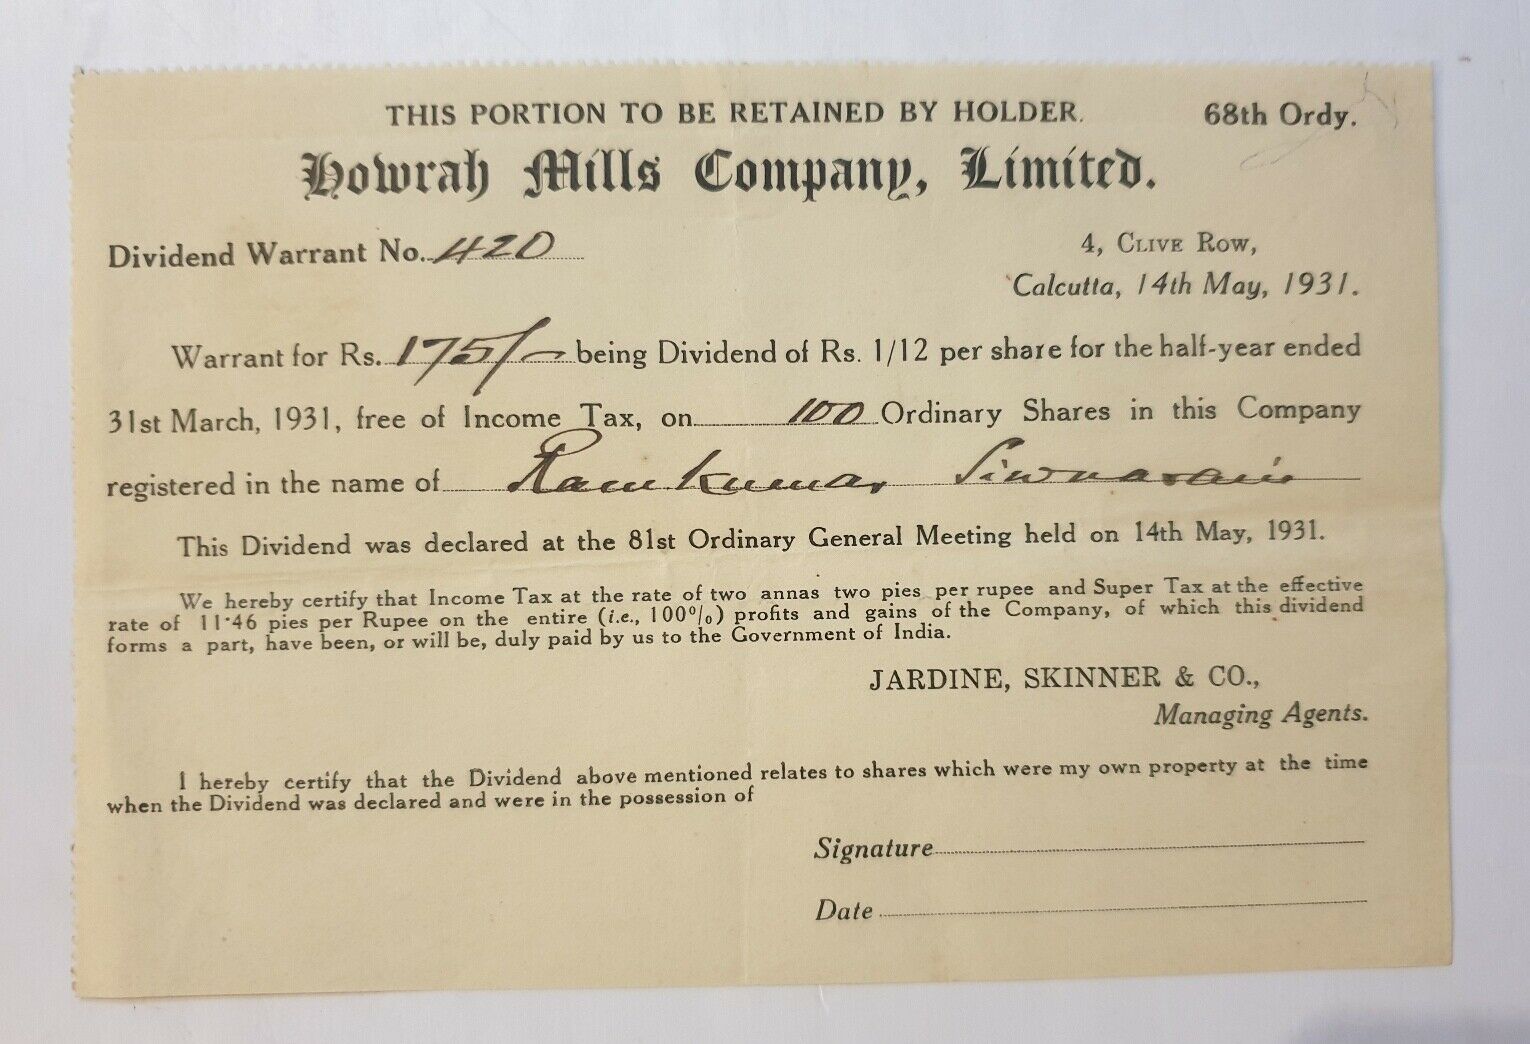 THIS PORTION TO BE RETAINED BY HOLDER. 68th Ordy.
Howrah Mills Company, Limited.
Dividend Warrant No. 420
4, CLIVE ROW,
Calcutta, 14th May, 1931.
Warrant for Rs. 175/- being Dividend of Rs. 1/12 per share for the half-year ended
31st March, 1931, free of Income Tax, on 100 Ordinary Shares in this Company
registered in the name of Ramkumar Siwnarain
This Dividend was declared at the 81st Ordinary General Meeting held on 14th May, 1931.
We hereby certify that Income Tax at the rate of two annas two pies per rupee and Super Tax at the effective
rate of 11·46 pies per Rupee on the entire (i.e., 100%) profits and gains of the Company, of which this dividend
forms a part, have been, or will be, duly paid by us to the Government of India.
JARDINE, SKINNER & CO.,
Managing Agents.
I hereby certify that the Dividend above mentioned relates to shares which were my own property at the time
when the Dividend was declared and were in the possession of
Signature
Date